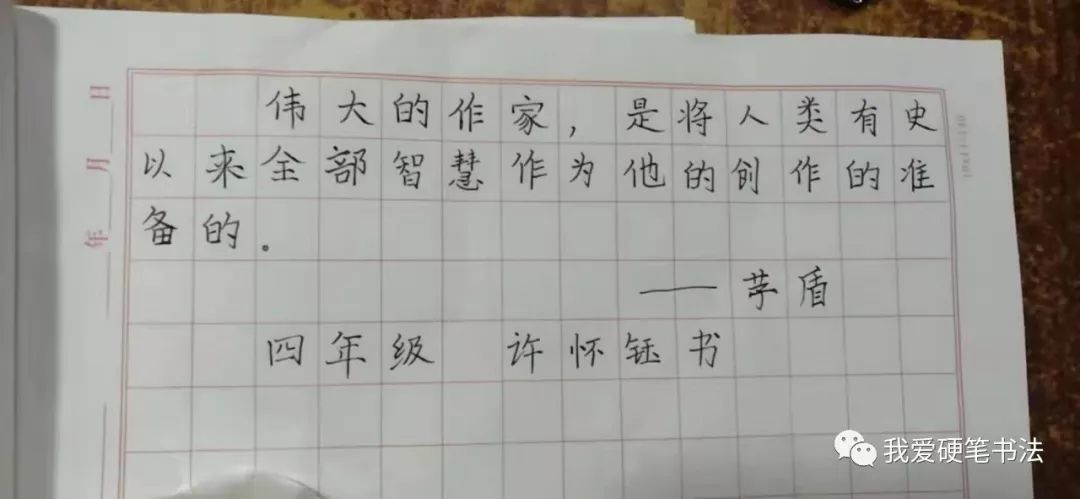 伟大的作家，是将人类有史
以来全部智慧作为他的创作的准
备的。
——茅盾
四年级 许怀钰书
年 月 日
我爱硬笔书法